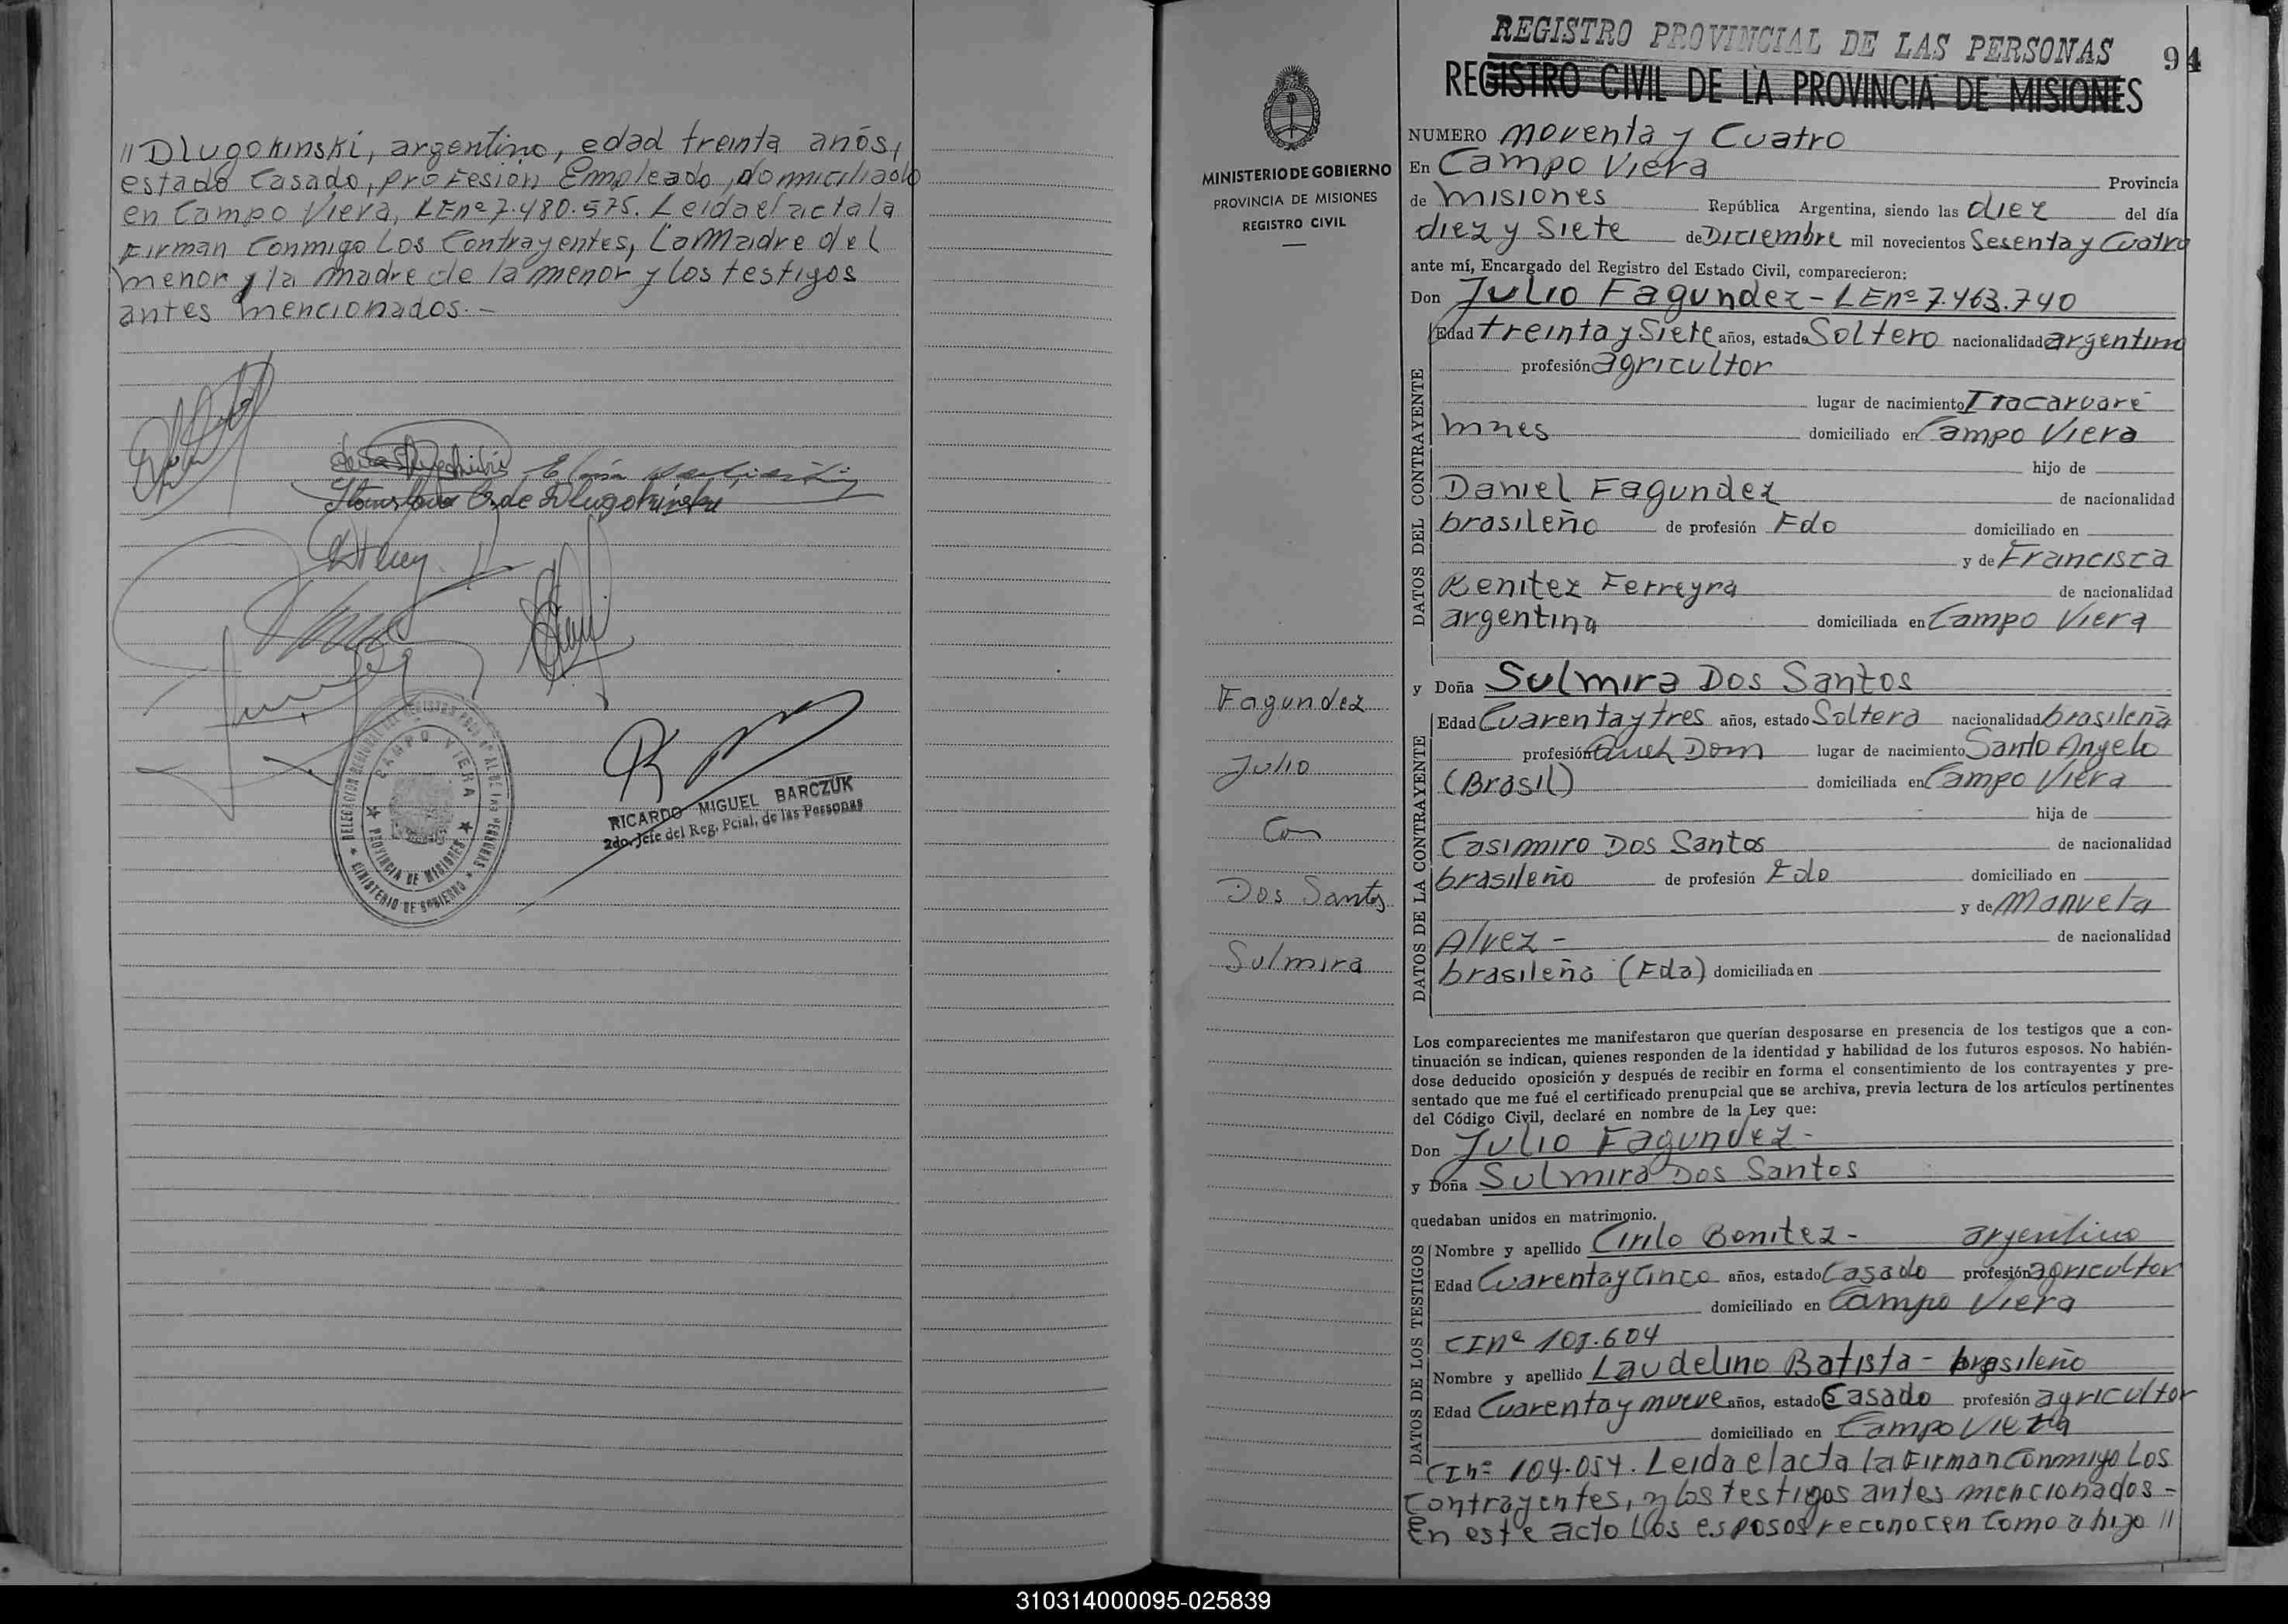 // Dlugokinski, argentino, edad treinta años,
estado Casado, profesión Empleado, domiciliado
en Campo Viera, LEnº 7.480.575. Leida el acta la
Firman Conmigo Los Contrayentes, La Madre del
menor y la madre de la menor y los testigos
antes mencionados.-
Dlugokinski
DELEGACION REGISTRO DE LAS PERSONAS
CAMPO VIERA
PROVINCIA DE MISIONES
MINISTERIO DE GOBIERNO
RICARDO MIGUEL BARCZUK
2do. Jefe del Reg. Pcial. de las Personas
REGISTRO PROVINCIAL DE LAS PERSONAS
94
REGISTRO CIVIL DE LA PROVINCIA DE MISIONES
MINISTERIO DE GOBIERNO
PROVINCIA DE MISIONES
REGISTRO CIVIL
Fagundez
Julio
Con
Dos Santos
Sulmira
NUMERO noventa y Cuatro
En Campo Viera Provincia
de Misiones República Argentina, siendo las diez del día
diez y Siete de Diciembre mil novecientos Sesenta y Cuatro
ante mí, Encargado del Registro del Estado Civil, comparecieron:
Don Julio Fagundez - LEnº 7.463.740
DATOS DEL CONTRAYENTE
Edad treinta y Siete años, estado Soltero nacionalidad argentino
profesión agricultor
lugar de nacimiento Itacaruaré
mnes domiciliado en Campo Viera
hijo de
Daniel Fagundez de nacionalidad
brasileño de profesión Fdo domiciliado en
y de Francisca
Benitez Ferreyra de nacionalidad
argentina domiciliada en Campo Viera
y Doña Sulmira Dos Santos
DATOS DE LA CONTRAYENTE
Edad Cuarenta y tres años, estado Soltera nacionalidad brasileña
profesión Dom lugar de nacimiento Santo Angelo
(Brasil) domiciliada en Campo Viera
hija de
Casimiro Dos Santos de nacionalidad
brasileño de profesión Fdo domiciliado en
y de Manuela
Alvez - de nacionalidad
brasileña (Fda) domiciliada en
Los comparecientes me manifestaron que querían desposarse en presencia de los testigos que a con-
tinuación se indican, quienes responden de la identidad y habilidad de los futuros esposos. No habién-
dose deducido oposición y después de recibir en forma el consentimiento de los contrayentes y pre-
sentado que me fué el certificado prenupcial que se archiva, previa lectura de los artículos pertinentes
del Código Civil, declaré en nombre de la Ley que:
Don Julio Fagundez -
y Doña Sulmira Dos Santos
quedaban unidos en matrimonio.
DATOS DE LOS TESTIGOS
Nombre y apellido Cirilo Benitez - argentino
Edad Cuarenta y Cinco años, estado Casado profesión agricultor
domiciliado en Campo Viera
CInº 107.604
Nombre y apellido Laudelino Batista - brasileño
Edad Cuarenta y nueve años, estado Casado profesión agricultor
domiciliado en Campo Viera
CInº 104.054. Leida el acta la Firman Conmigo Los
Contrayentes, y los testigos antes mencionados -
En este acto Los esposos reconocen Como a hijo //
310314000095-025839